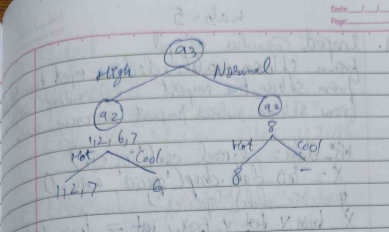 Date
Page
a3
High Normal
a2 a2
1,2,6,7 8
Hot Cool Hot Cool
1,2,7 6 8 -